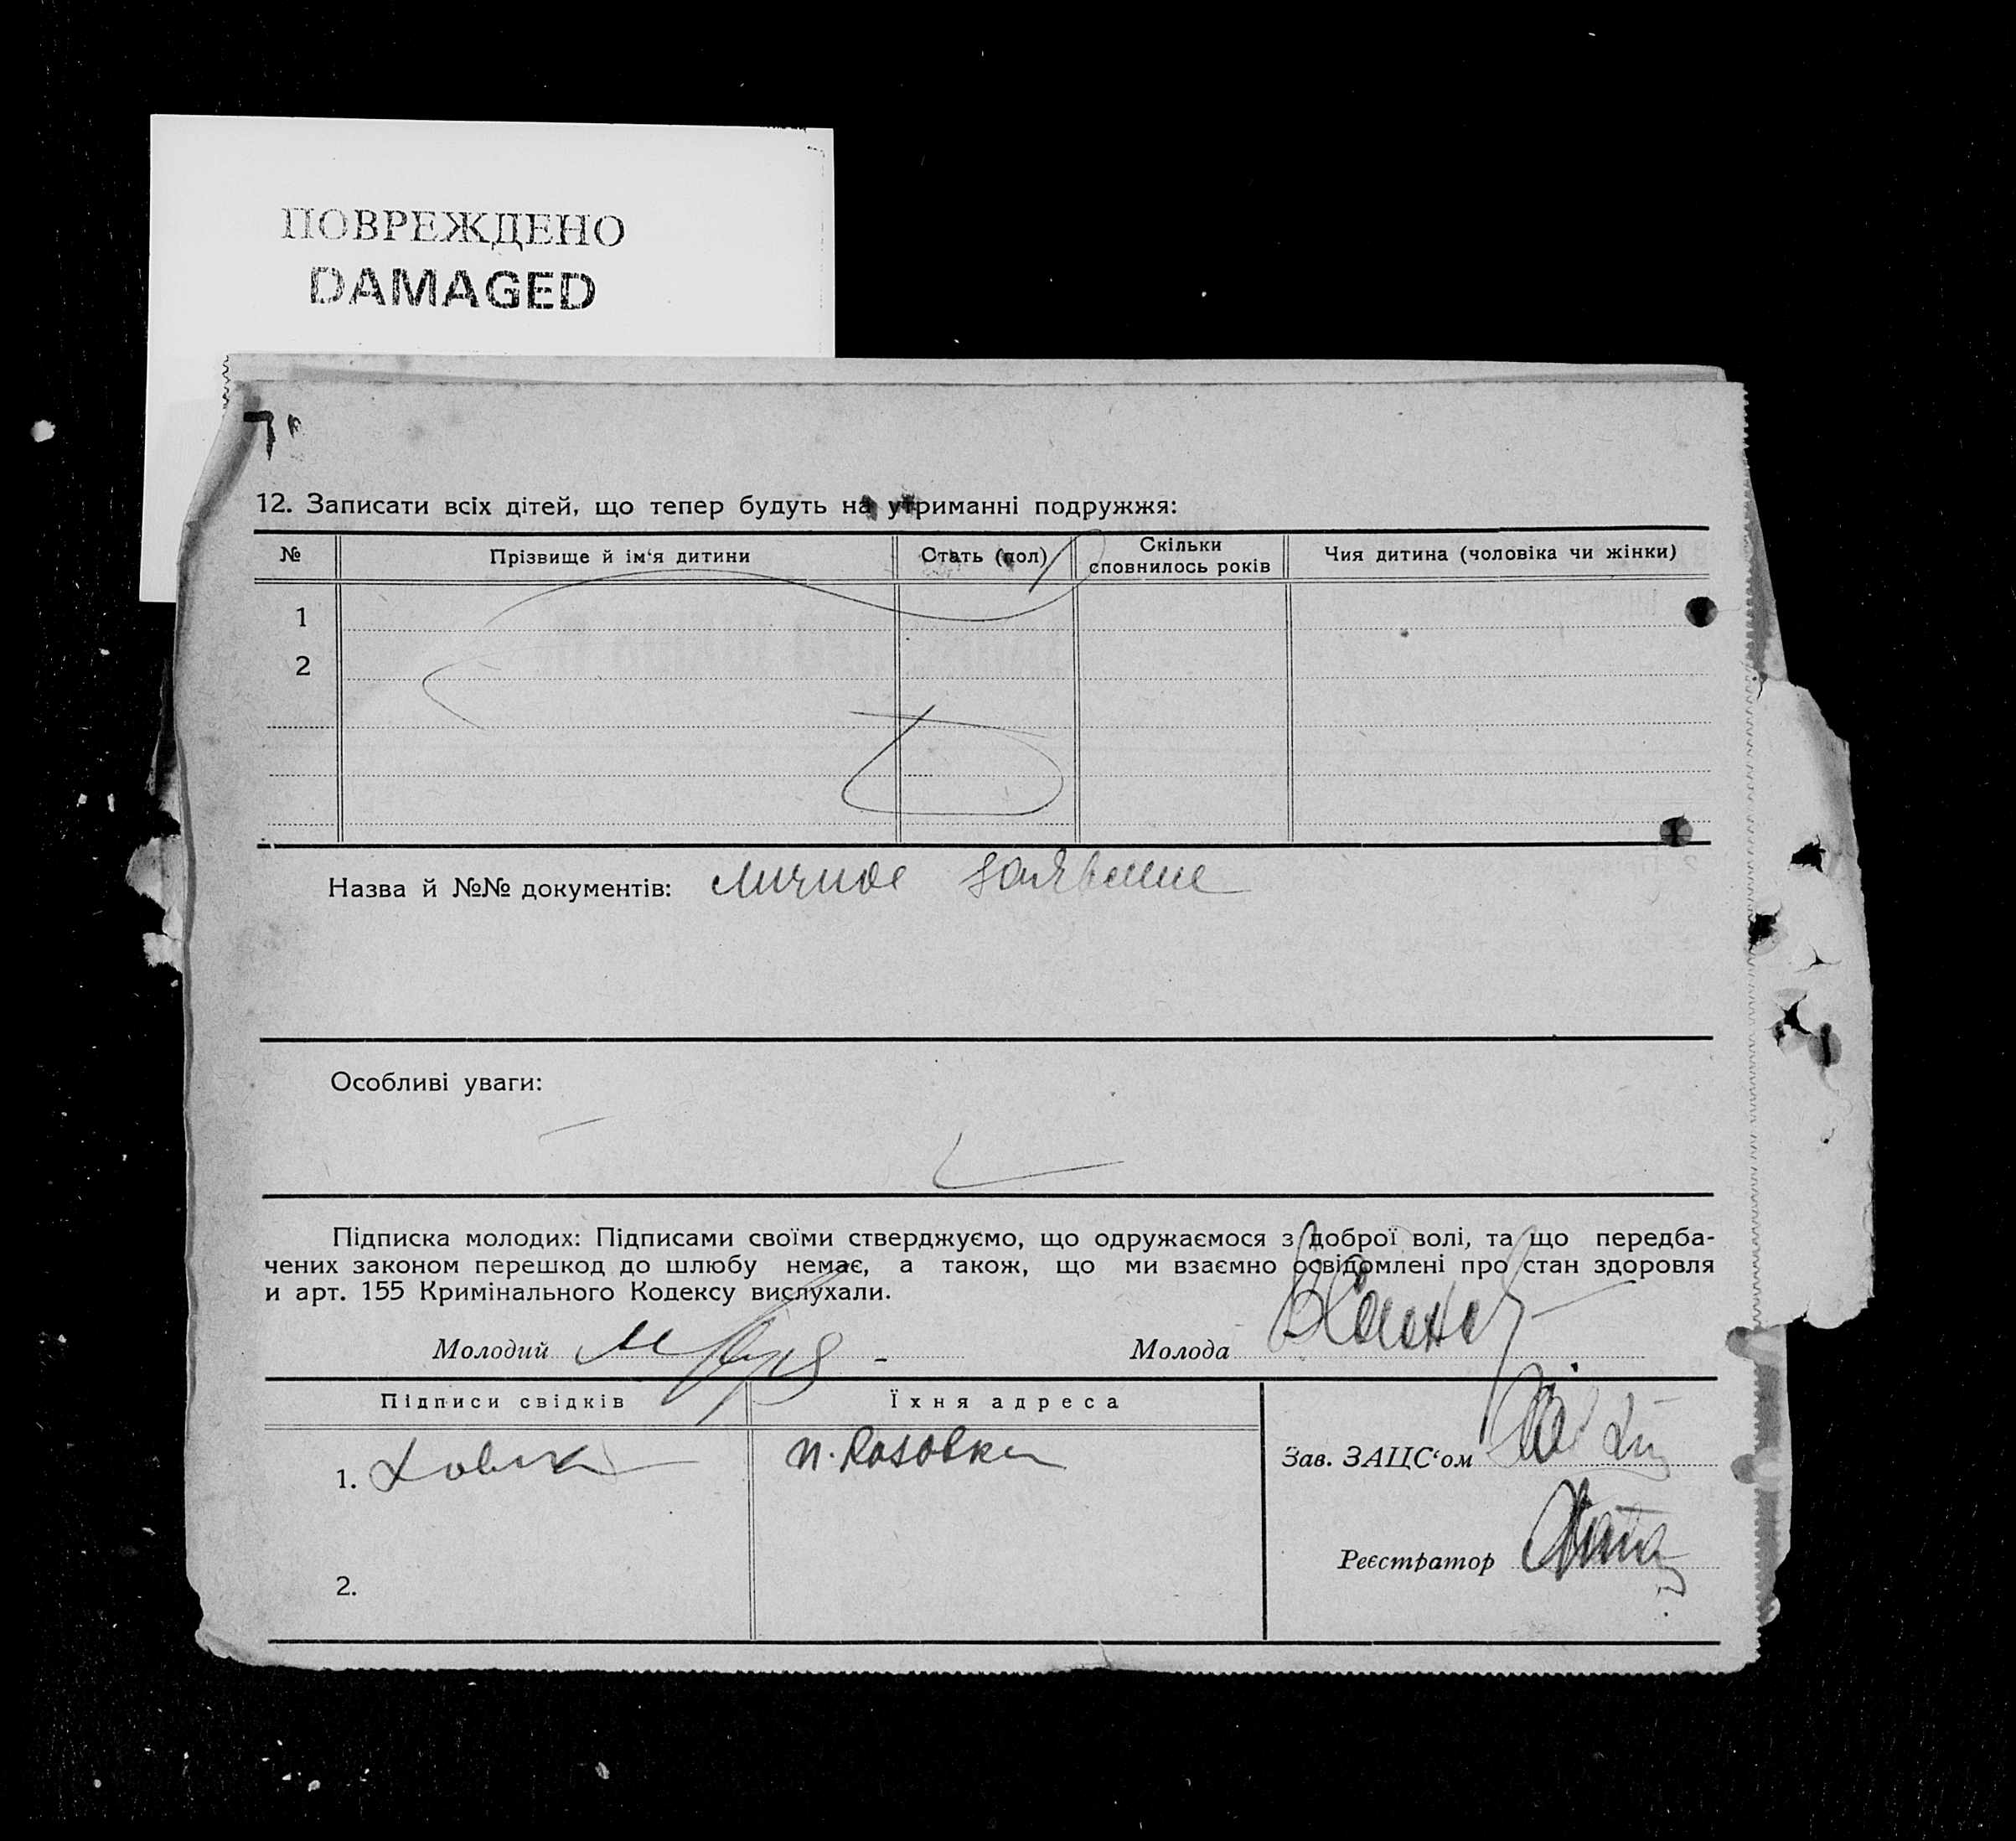 ПОВРЕЖДЕНО
DAMAGED
12. Записати всіх дітей, що тепер будуть на утриманні подружжя:
№ Прізвище й ім‘я дитини Стать (пол) Скільки сповнилось років Чия дитина (чоловіка чи жінки)
1
2
Назва й №№ документів: личное заявление
Особливі уваги:
Підписка молодих: Підписами своїми стверджуємо, що одружаємося з доброї волі, та що передба-
чених законом перешкод до шлюбу немає, а також, що ми взаємно освідомлені про стан здоровля
и арт. 155 Кримінального Кодексу вислухали.
Молодий Молода
Підписи свідків Їхня адреса
Зав. ЗАЦС‘ом
1.
Реєстратор
2.